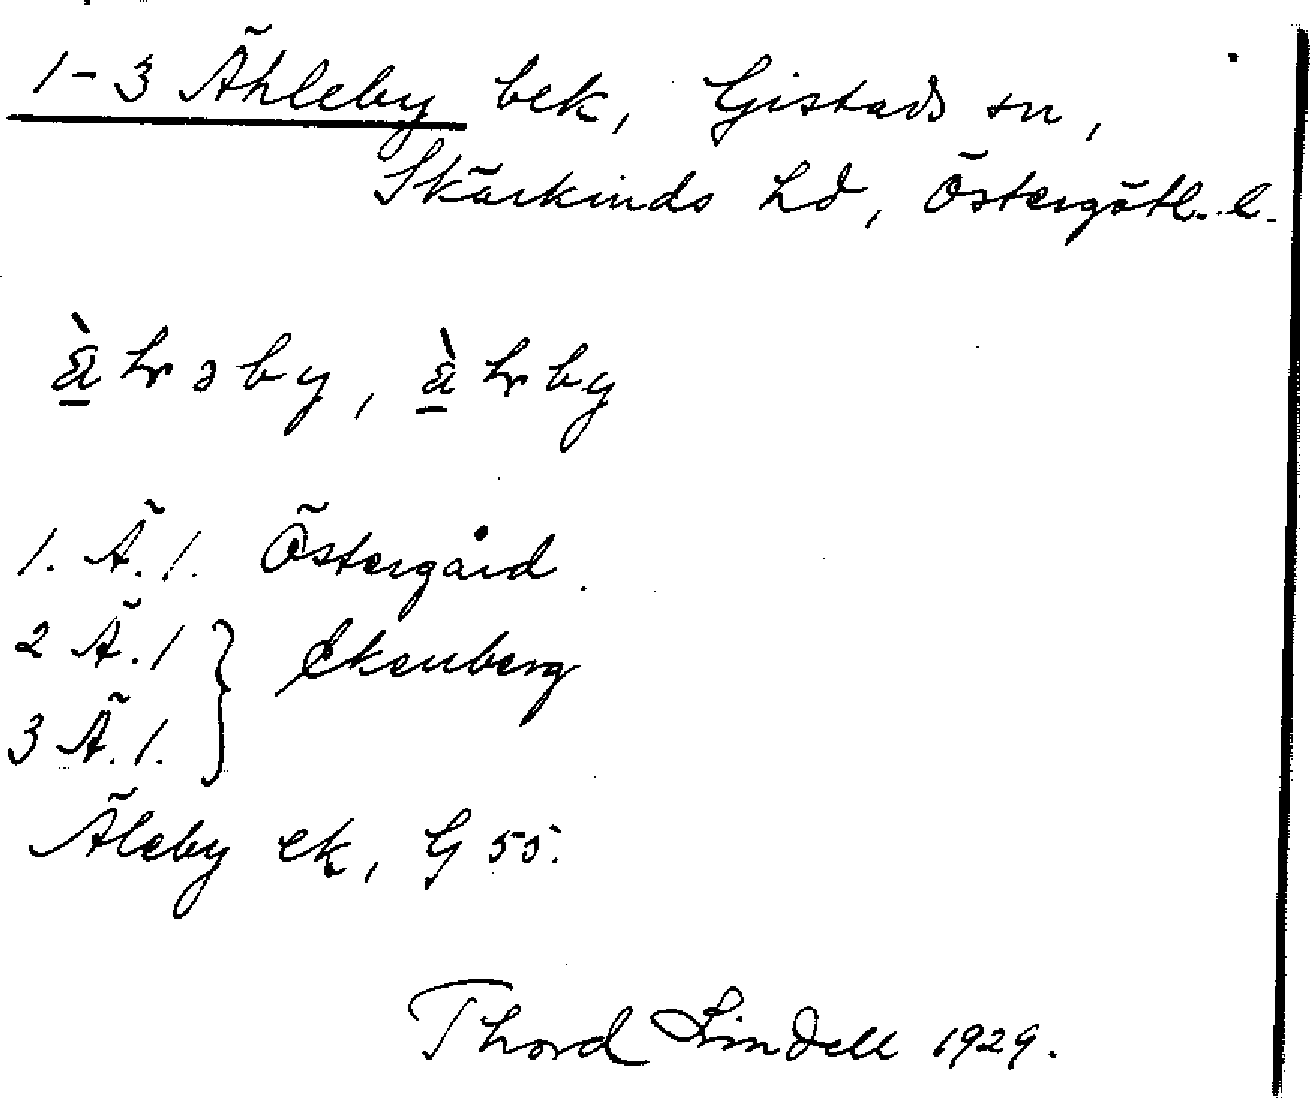 1-3 Ähleby bek, Gistads sn,
Skärkinds hd, Östergötl. l.
1. Ä. 1. Östergård.
2 Ä. 1 } Ekenberg
3 Ä. 1.
Äleby ek, G 55.
Thord Lindell 1929.